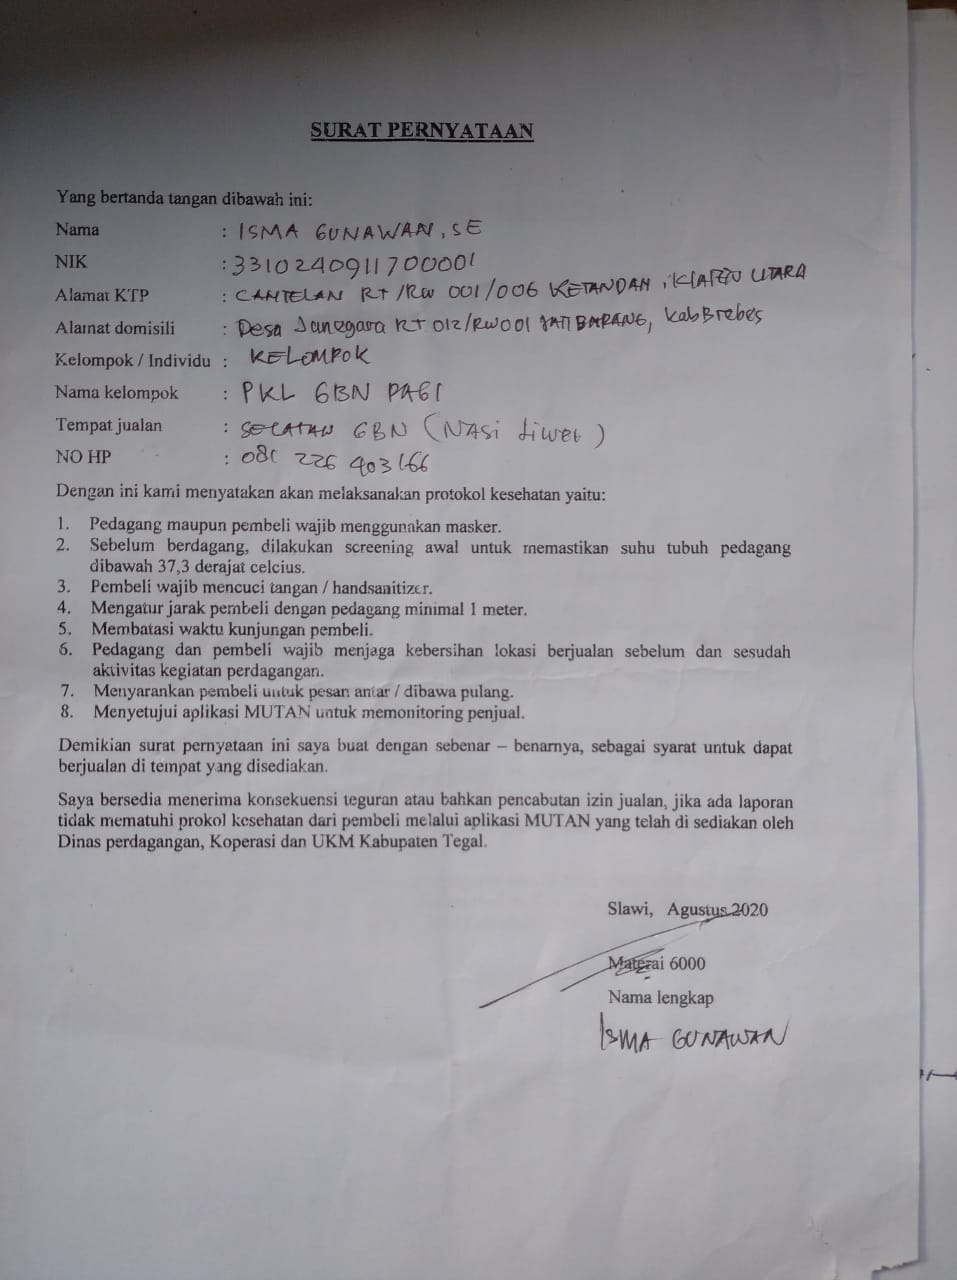 SURAT PERNYATAAN
Yang bertanda tangan dibawah ini:
Nama : ISMA GUNAWAN, SE
NIK : 3310240911700001
Alamat KTP : CANTELAN RT/RW 001/006 KETANDAN, KLATEN UTARA
Alamat domisili : Desa Janegara RT 012/RW001 JATIBARANG, Kab Brebes
Kelompok / Individu : KELOMPOK
Nama kelompok : PKL GBN PAGI
Tempat jualan : SELATAN GBN (NASi Liwet)
NO HP : 081 226 403 166
Dengan ini kami menyatakan akan melaksanakan protokol kesehatan yaitu:
1. Pedagang maupun pembeli wajib menggunakan masker.
2. Sebelum berdagang, dilakukan screening awal untuk memastikan suhu tubuh pedagang
dibawah 37,3 derajat celcius.
3. Pembeli wajib mencuci tangan / handsanitizer.
4. Mengatur jarak pembeli dengan pedagang minimal 1 meter.
5. Membatasi waktu kunjungan pembeli.
6. Pedagang dan pembeli wajib menjaga kebersihan lokasi berjualan sebelum dan sesudah
aktivitas kegiatan perdagangan.
7. Menyarankan pembeli untuk pesan antar / dibawa pulang.
8. Menyetujui aplikasi MUTAN untuk memonitoring penjual.
Demikian surat pernyataan ini saya buat dengan sebenar – benarnya, sebagai syarat untuk dapat
berjualan di tempat yang disediakan.
Saya bersedia menerima konsekuensi teguran atau bahkan pencabutan izin jualan, jika ada laporan
tidak mematuhi prokol kesehatan dari pembeli melalui aplikasi MUTAN yang telah di sediakan oleh
Dinas perdagangan, Koperasi dan UKM Kabupaten Tegal.
Slawi, Agustus 2020
Materai 6000
Nama lengkap
ISMA GUNAWAN